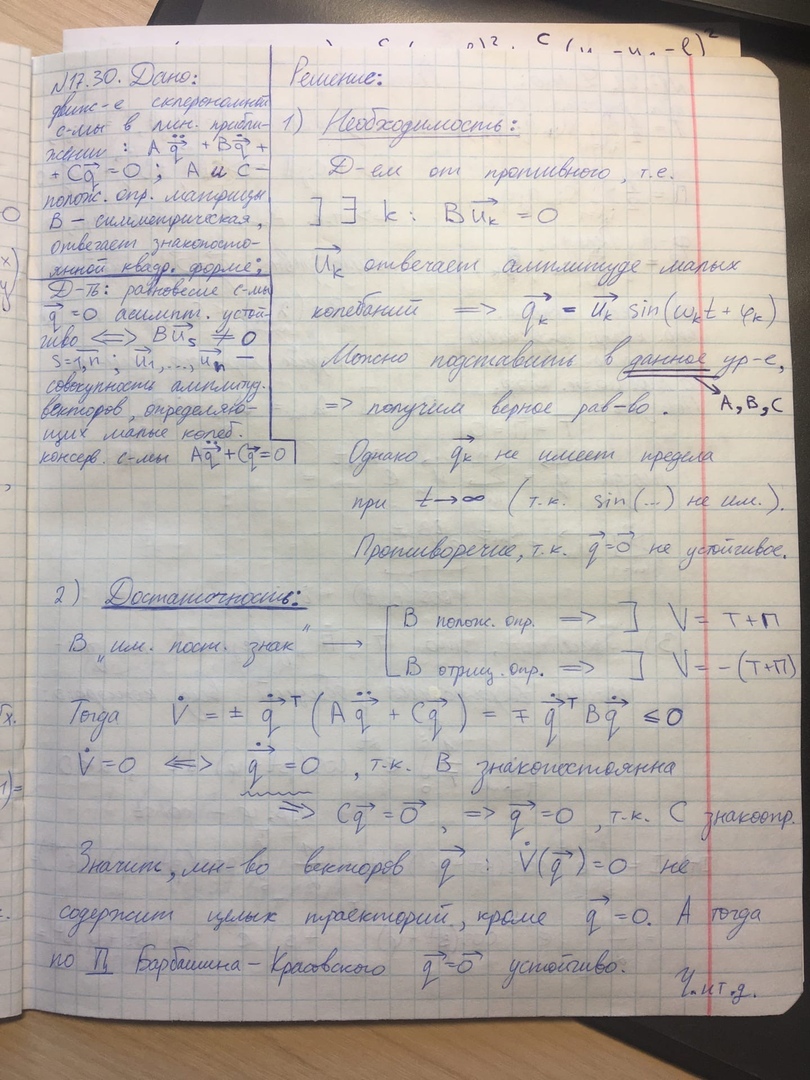 N17.30. Дано:
движ-е склерономной
с-мы в лин. прибли-
жении: A q̈⃗ + B q̇⃗ +
+ C q⃗ = 0 ; A и C –
полож. опр. матрицы
B – симметрическая,
отвечает знакопосто-
янной квадр. форме;
Д-ть: равновесие с-мы
q⃗ = 0 асимпт. устой-
чиво <=> B u⃗s ≠ 0
s=1,n ; u⃗1,...,u⃗n –
совокупности амплитуд.
векторов, определяю-
щих малые колеб.
консерв. с-мы A q̈⃗ + C q⃗ = 0
Решение:
1) Необходимость:
Д-ем от противного, т.е.
] ∃ k : B u⃗k = 0
u⃗k отвечает амплитуде малых
колебаний => q⃗k = u⃗k sin(ωkt + φk)
Можно подставить в данное ур-е,
=> получим верное рав-во. A, B, C
Однако q⃗k не имеет предела
при t→∞ (т.к. sin(...) не им.).
Противоречие, т.к. q⃗=0⃗ не устойчивое.
2) Достаточность:
B „им. пост. знак" → [ B полож. опр. => ] V = T+П
B отриц. опр. => ] V = -(T+П)
Тогда V̇ = ± q̇⃗ᵀ (A q̈⃗ + C q⃗) = ∓ q̇⃗ᵀ B q̇⃗ ≤ 0
V̇ = 0 <=> q̇⃗ = 0 , т.к. B знакопостоянна
=> C q⃗ = 0⃗ , => q⃗ = 0 , т.к. C знакоопр.
Значит, мн-во векторов q⃗ : V̇(q⃗) = 0 не
содержит целых траекторий, кроме q⃗ = 0. А тогда
по Т Барбашина – Красовского q⃗=0⃗ устойчиво.
Ч.и т.д.